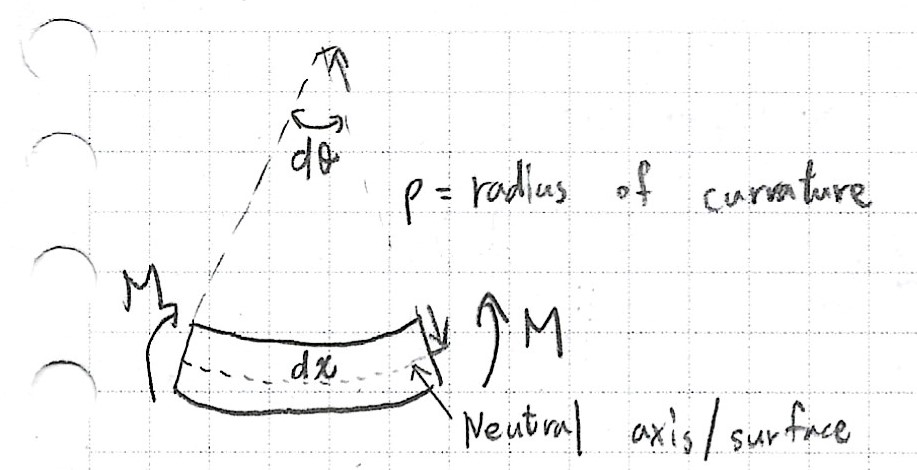 dθ
ρ = radius of curvature
M
dx
M
Neutral axis/surface